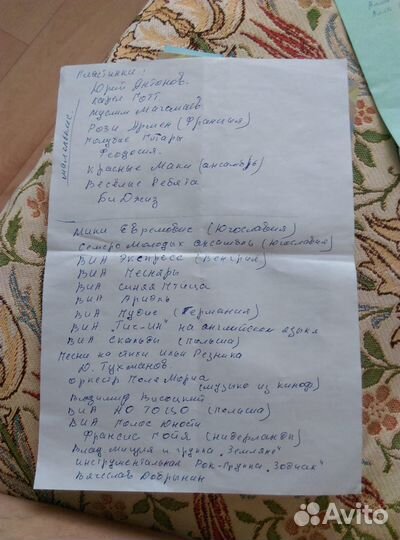 Пластинки:
Юрий Антонов.
Карел Готт
Муслим Магомаев.
Рози Армен (Франция)
Голубые Гитары
Феодосия.
Красные Маки (ансамбль)
Весёлые Ребята
Би Джиз
Мики Евремович (Югославия)
Семеро Молодых ансамбль (Югославия)
ВИА Экспресс (Венгрия)
ВИА Песняры
ВИА Синяя Птица
ВИА Ариэль
ВИА Пудис (Германия)
ВИА "Тич-Ин" на английском языке
ВИА Скальды (Польша)
Песни на стихи Ильи Резника
Д. Тухманов.
оркестр Поля Мориа
(музыка из кино)
Владимир Высоцкий
ВИА НО ТО ЦО (Польша)
ВИА Голос Юности
Франсис Гойя (нидерланды)
Влад. Мигуля и группа "Земляне"
инструментальная Рок-Группа "Зодиак"
Вячеслав Добрынин
Avito